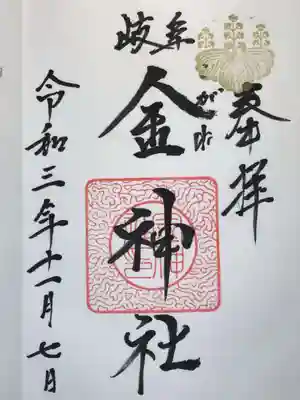 奉拝
岐阜
金神社
こがね
令和三年十一月七日